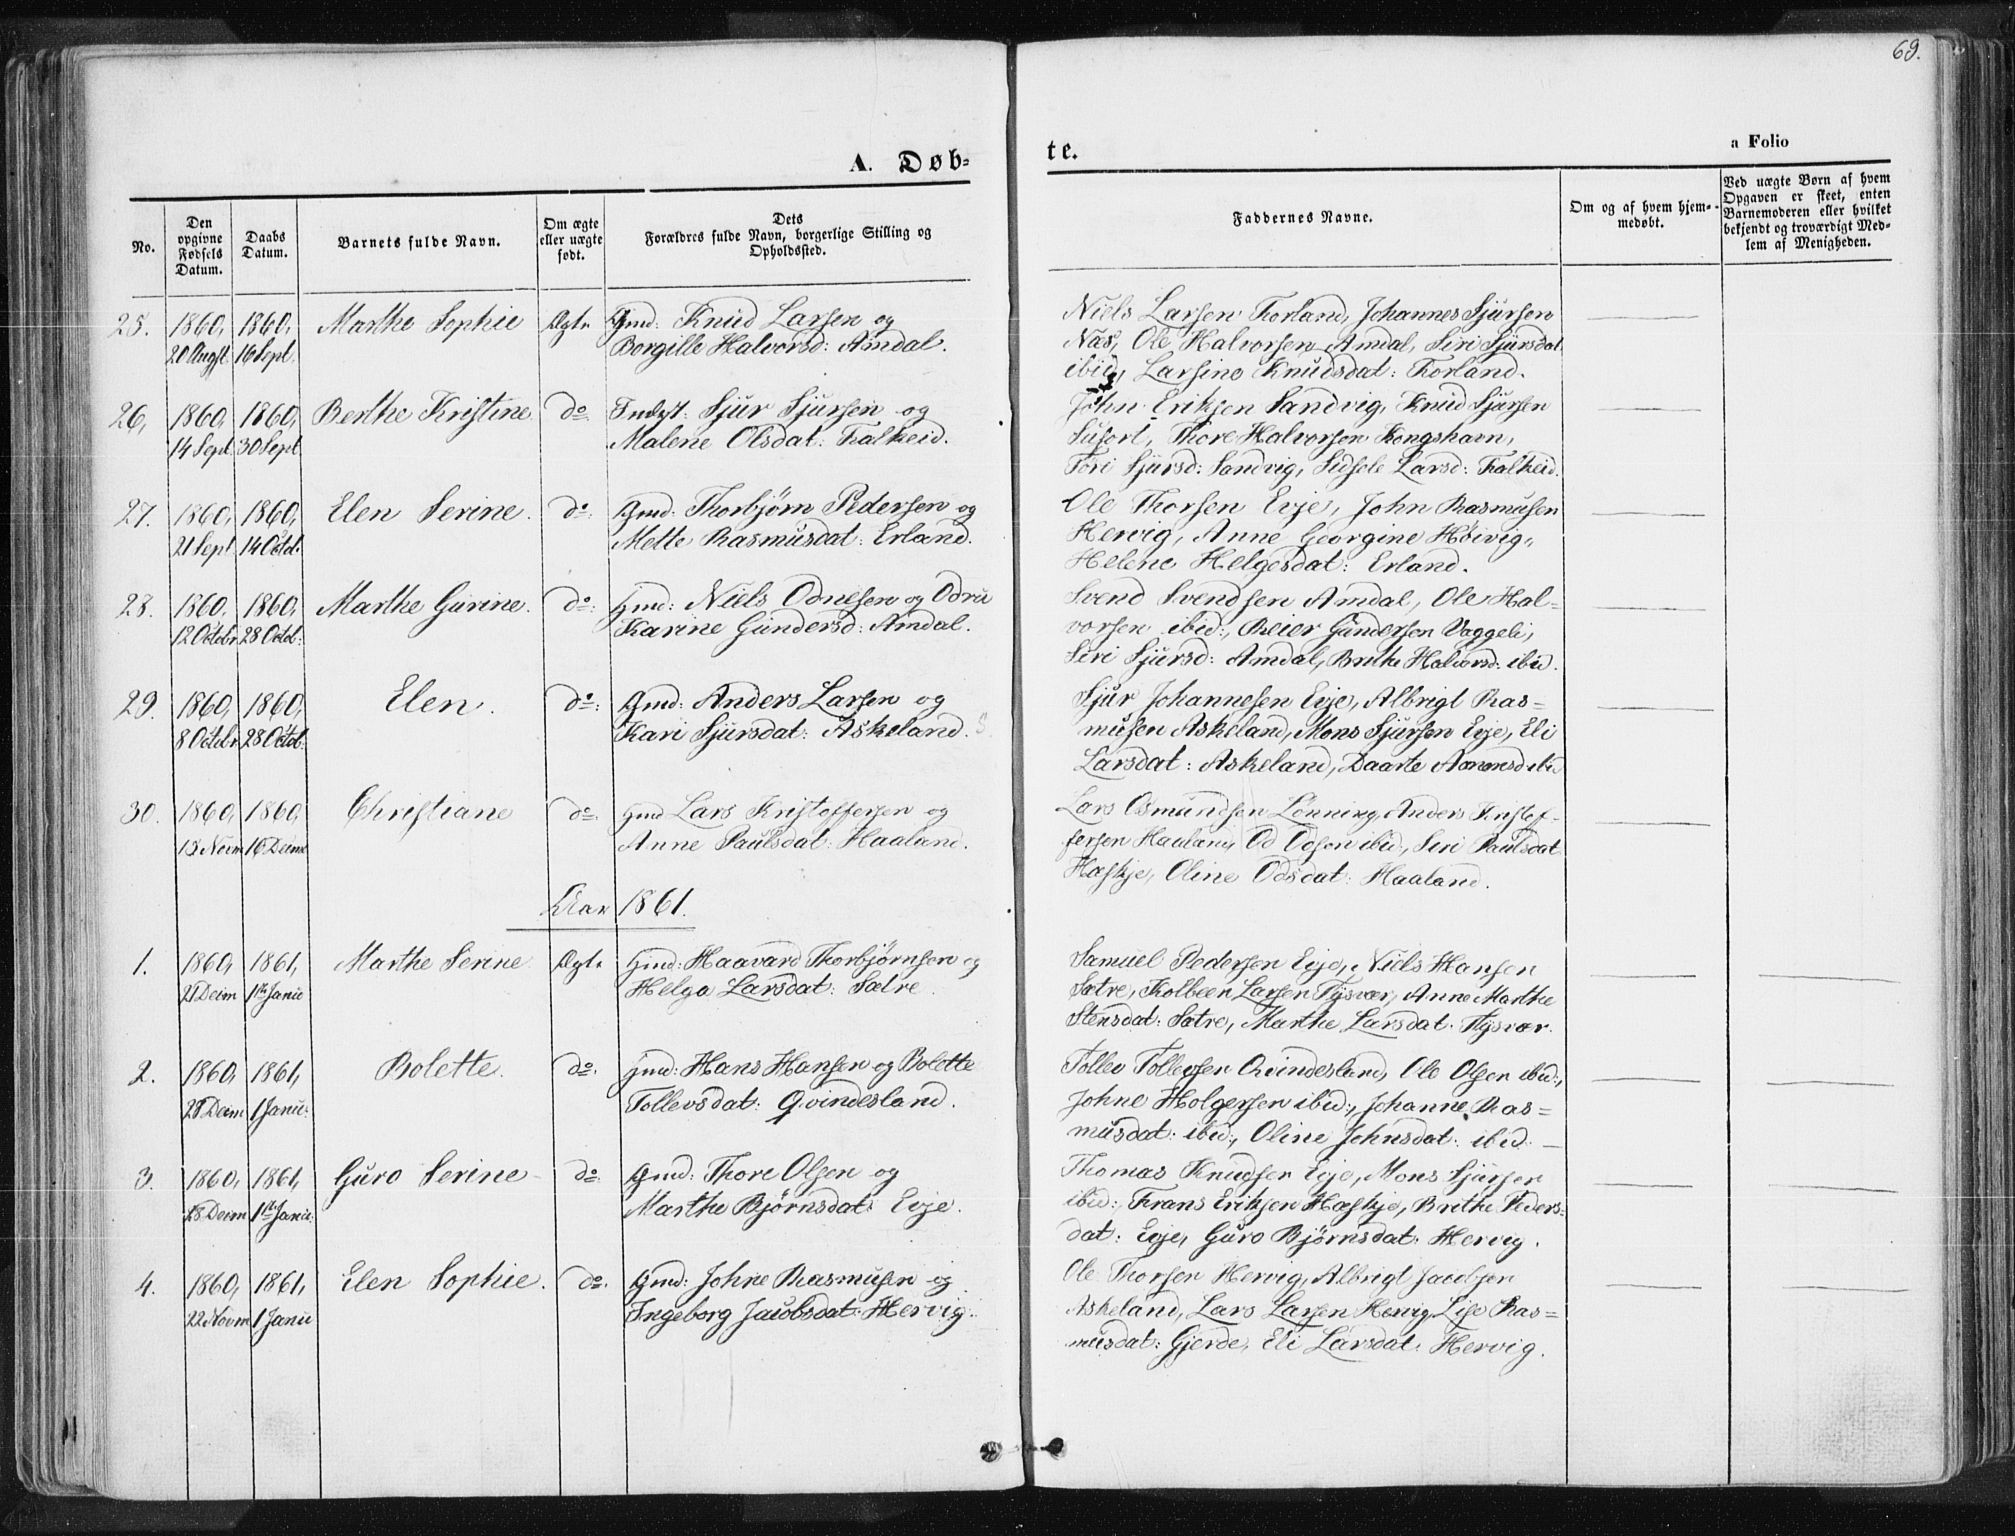 69.
A. Døb-
te.
a Folio
No.
Den opgivne Fødsels Datum.
Daabs Datum.
Barnets fulde Navn.
Om ægte eller uægte født.
Dets Forældres fulde Navn, borgerlige Stilling og Opholdssted.
Faddernes Navne.
Om og af hvem hjemmedøbt.
Ved uægte Børn af hvem Opgaven er skeet, enten Barnemoderen eller hvilket bekjendt og troværdigt Medlem af Menigheden.
25. 1860, 1860, Marthe Sophie Ægte Gmd: Knud Larsen og
20 Augst. 16 Sept. Borgille Halvorsd: Amdal.
Niels Larsen Forland, Johannes Sjursen
Næs, Ole Halvorsen Amdal, Siri Sjursdat
ibid, Larsine Knudsdat: Forland.
26, 1860, 1860, Berthe Kristine do Indst: Sjur Sjursen og
14 Sept 30 Sept Malene Olsdat: Falheid.
John Eriksen Sandvig, Knud Sjursen
Susort, Thore Halvorsen Kongshavn,
Tori Sjursd: Sandvig, Sidsele Larsd: Falheid.
27. 1860, 1860, Elen Serine. do: Gmd: Thorbjørn Pedersen og
21 Sept 14 Octob. Mette Rasmusdat: Erland.
Ole Thorsen Evje, John Rasmusen
Hervig, Anne Georgine Høivig,
Helene Helgesdat: Erland.
28. 1860, 1860, Marthe Gurine. do: Hmd: Niels Odnesen og Odru
12 Octobr 28 Octob: Karine Gundersd: Amdal.
Svend Svendsen Amdal, Ole Hal-
vorsen ibid:, Reier Gundersen Vaggeli,
Siri Sjursd: Amdal, Brithe Halvorsd: ibid.
29. 1860, 1860, Elen. do: Gmd: Anders Larsen og
8 Octobr 28 Octob. Kari Sjursdat: Askeland.
Sjur Johannesen Evje, Albrigt Ras-
musen Askeland, Mons Sjursen Evje, Eli
Larsdat: Askeland, Daarte ibid
30. 1860, 1860, Christiane do: Hmd Lars Kristoffersen og
13 Novm 16 Decm Anne Paulsdat: Haaland.
Lars Osmundsen Lønning, Anders Kristof-
fersen Haaland, Od Odsen ibid, Siri Paulsdat
Hæskje, Oline Odsdat: Haaland.
Aar 1861.
1. 1860, 1861, Marthe Serine Ægte Hmd: Haavard Thorbjørnsen og
21 Decm 1ste Janu Helga Larsdat: Sætre.
Samuel Pedersen Evje, Niels Hansen
Sætre, Kolbeen Larsen Tysvær, Anne Marthe
Stensdat: Sætre, Marthe Larsdat. Tysvær.
2. 1860, 1861, Bolette. do: Hmd: Hans Hansen og Bolette
28 Decm 1 Janu: Tollevsdat: Qvindesland.
Tollev Tollevsen Qvindesland, Ole Olsen ibid:,
Johne Holgersen ibid:, Johanne Ras-
musdat: ibid:, Oline Johnsdat: ibid.
3. 1860, 1861, Guro Serine do: Gmd: Thore Olsen og
28 Decm 1ste Janu: Marthe Bjørnsdat: Evje.
Thomas Knudsen Evje, Mons Sjursen
ibid:, Frans Eriksen Hæskje, Brithe Peders-
dat: Evje, Guro Bjørnsdat: Hervig.
4. 1860, 1861, Elen Sophie. do: Gmd: Johne Rasmusen og
22 Novm 1 Janu Ingeborg Jacobsdat: Hervig.
Ole Thorsen Hervig, Albrigt Jacobsen
Askeland, Lars Larsen Hervig, Lise Ras-
musdat: Gjerde, Eli Larsdat: Hervig.